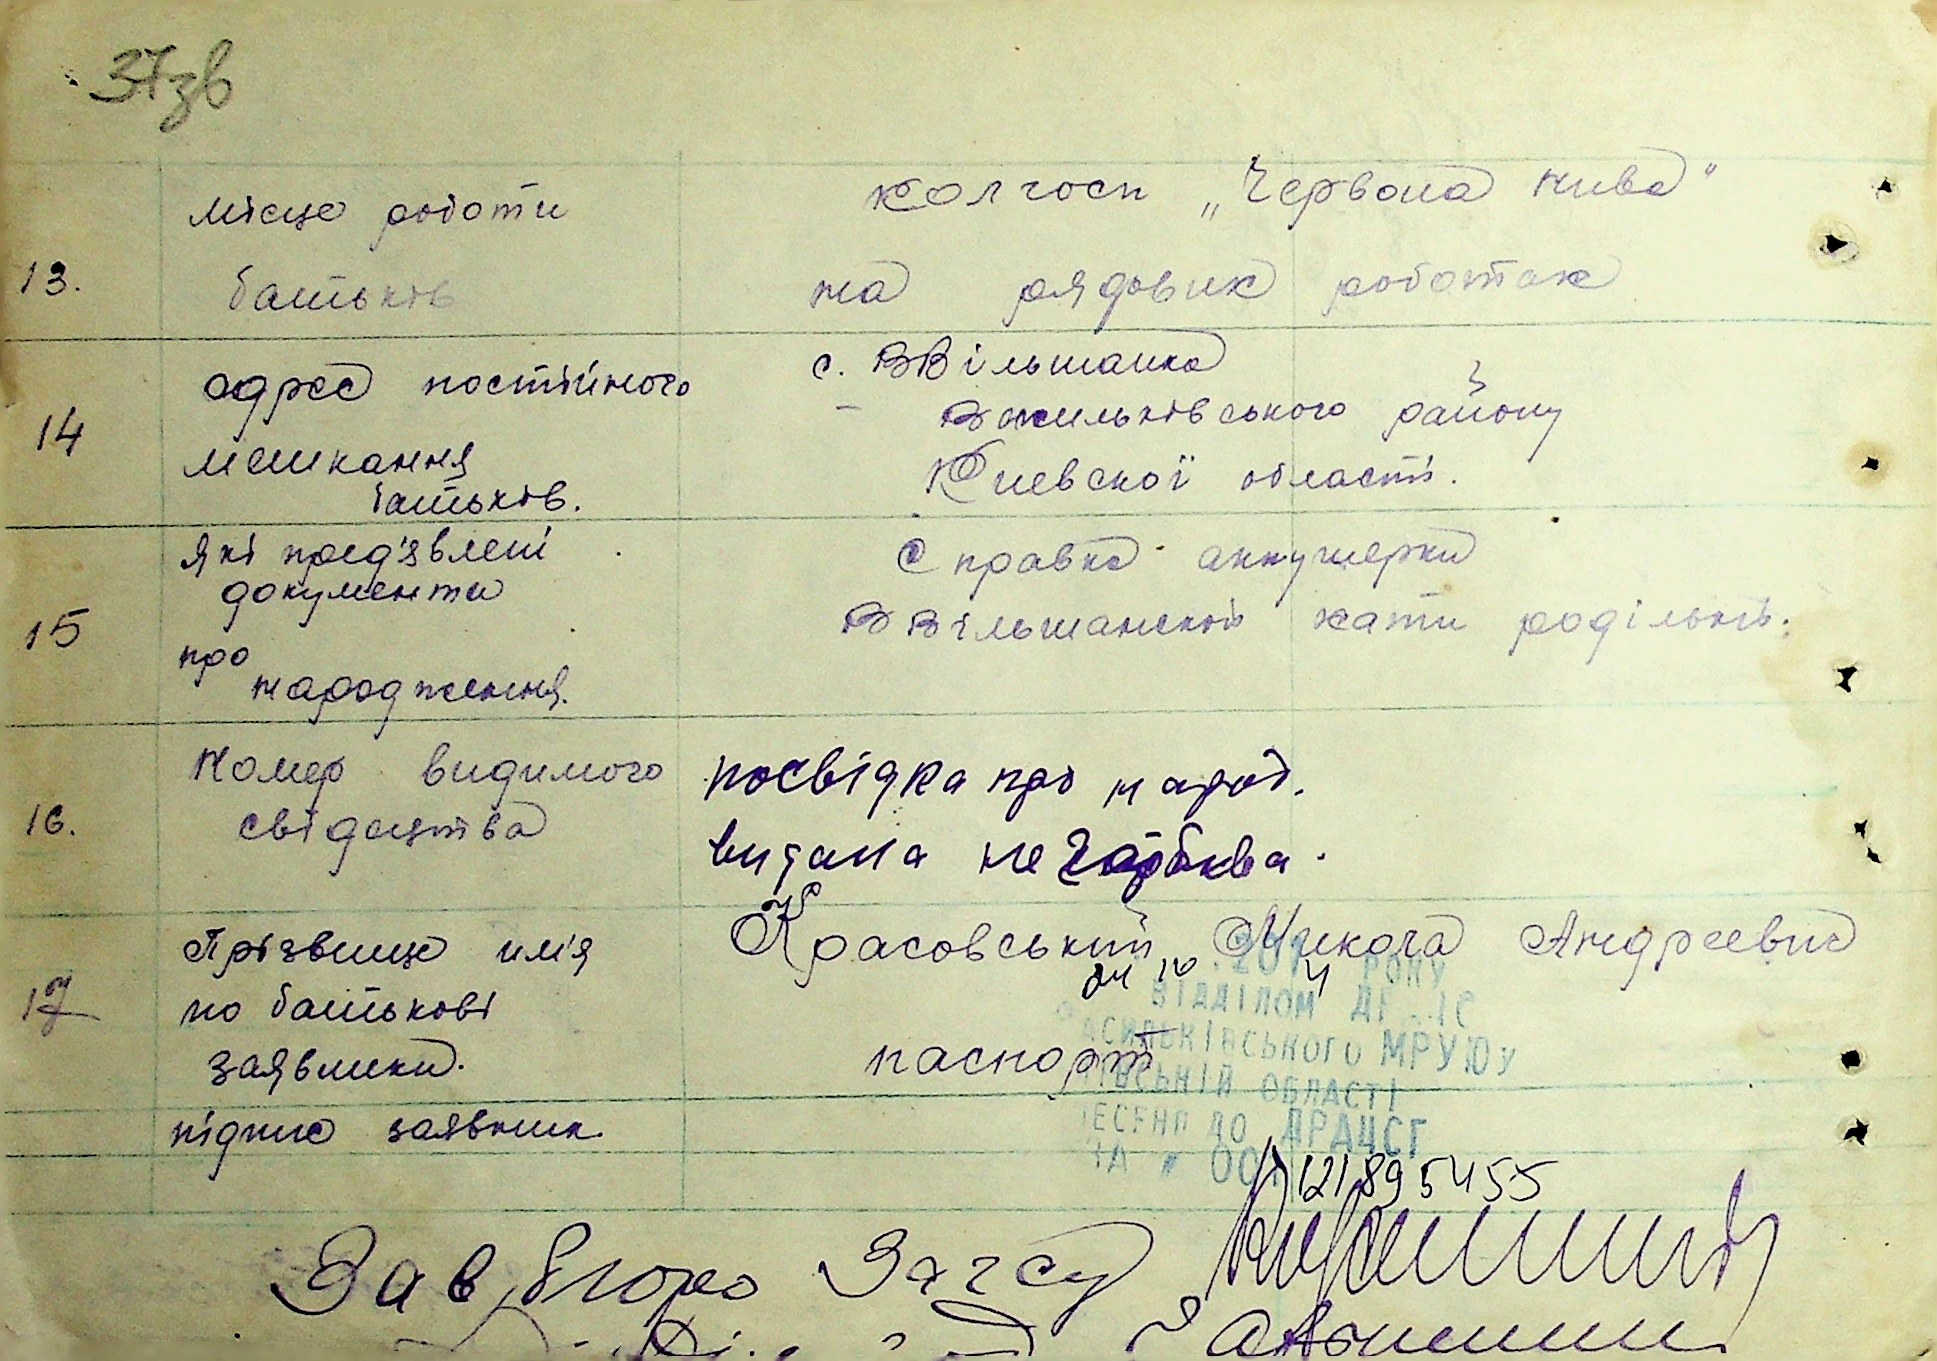 37зв
місце роботи
колгосп „Червона нива"
13.
батьків
на рядових роботах
14
адрес постійного
мешкання
батьків.
с. ВВільшанка
Васильківського району
Киевскої області.
15
які пред'явлені
документи
про
народження.
Справка аккушерки
ВВільшанскоі хати родільноі.
16.
Номер видимого
свідоцтва
посвідка про народ.
видана не
17
Прізвище имія
по батькові
заявника.
Красовський Микола Андреевич
паспорт
24 10 4
РОКУ
ВІДДІЛОМ ДР..ІС
АСИЛЬКІВСЬКОГО МРУЮУ
ИЇВСЬКІЙ ОБЛАСТІ
ЕСЕНО ДО ДРАЦСГ
ЗА № 00121895455
підпис заявник.
Зав бюро Загсу